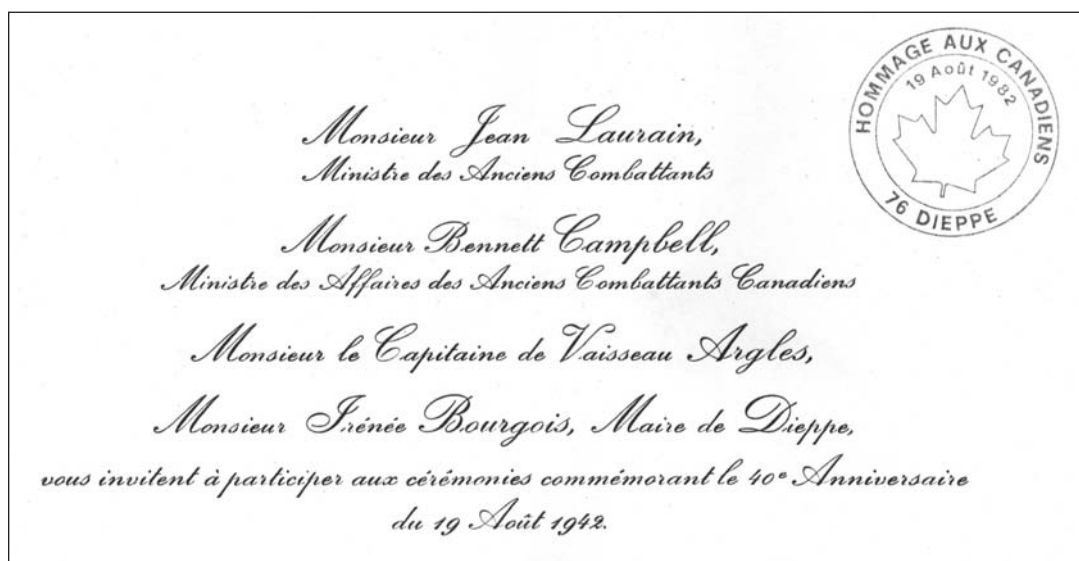 HOMMAGE AUX CANADIENS
19 Août 1982
76 DIEPPE
Monsieur Jean Laurain,
Ministre des Anciens Combattants
Monsieur Bennett Campbell,
Ministre des Affaires des Anciens Combattants Canadiens
Monsieur le Capitaine de Vaisseau Argles,
Monsieur Irénée Bourgois, Maire de Dieppe,
vous invitent à participer aux cérémonies commémorant le 40e Anniversaire
du 19 Août 1942.